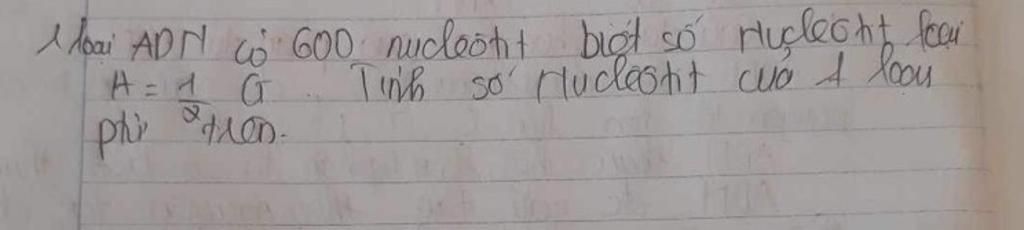 1 loại ADN có 600 nucleotit biết số nucleotit loại
A = 1/2 G. Tính số nucleotit của 1 loại
phi trên.